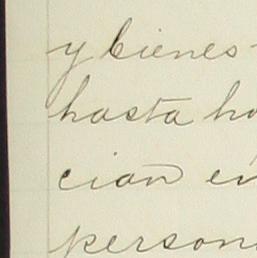 y bienes
hasta ho
cian en
person